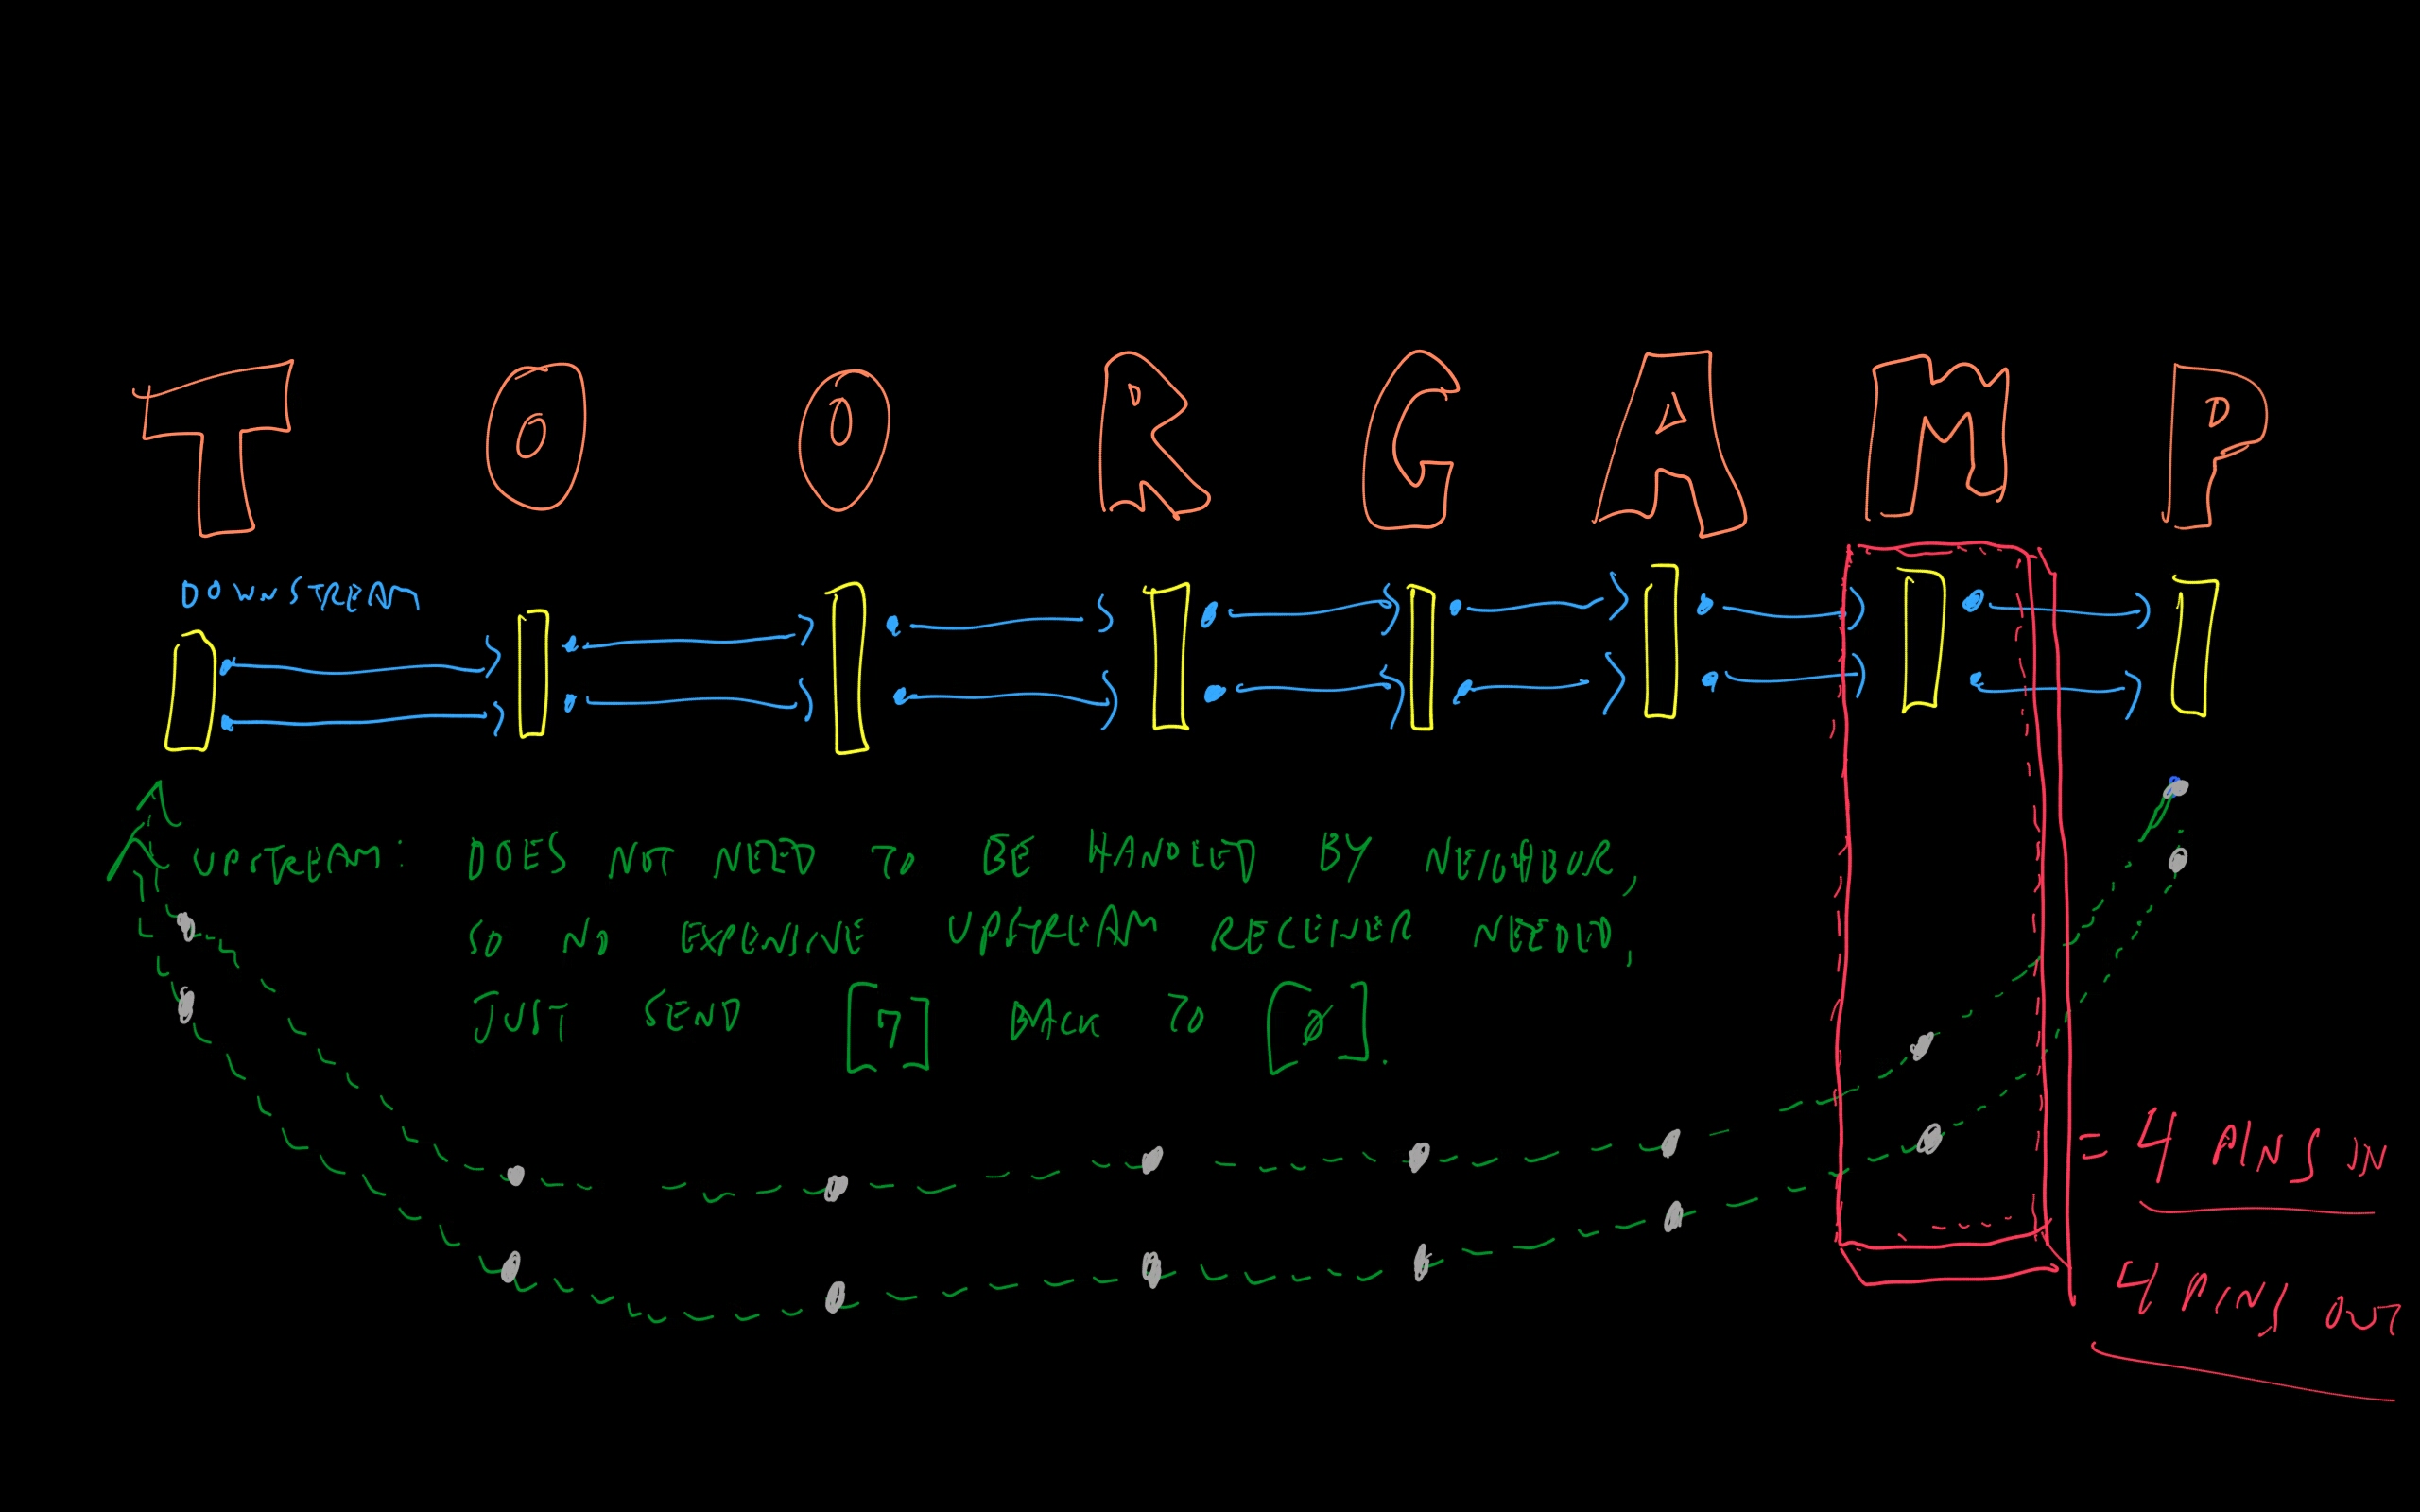 T O O R G A M P
DOWNSTREAM
UPSTREAM: DOES NOT NEED TO BE HANDLED BY NEIGHBUR,
SO NO EXPENSIVE UPSTREAM RECEIVER NEEDED,
JUST SEND [7] BACK TO [0].
= 4 PINS IN
4 PINS OUT